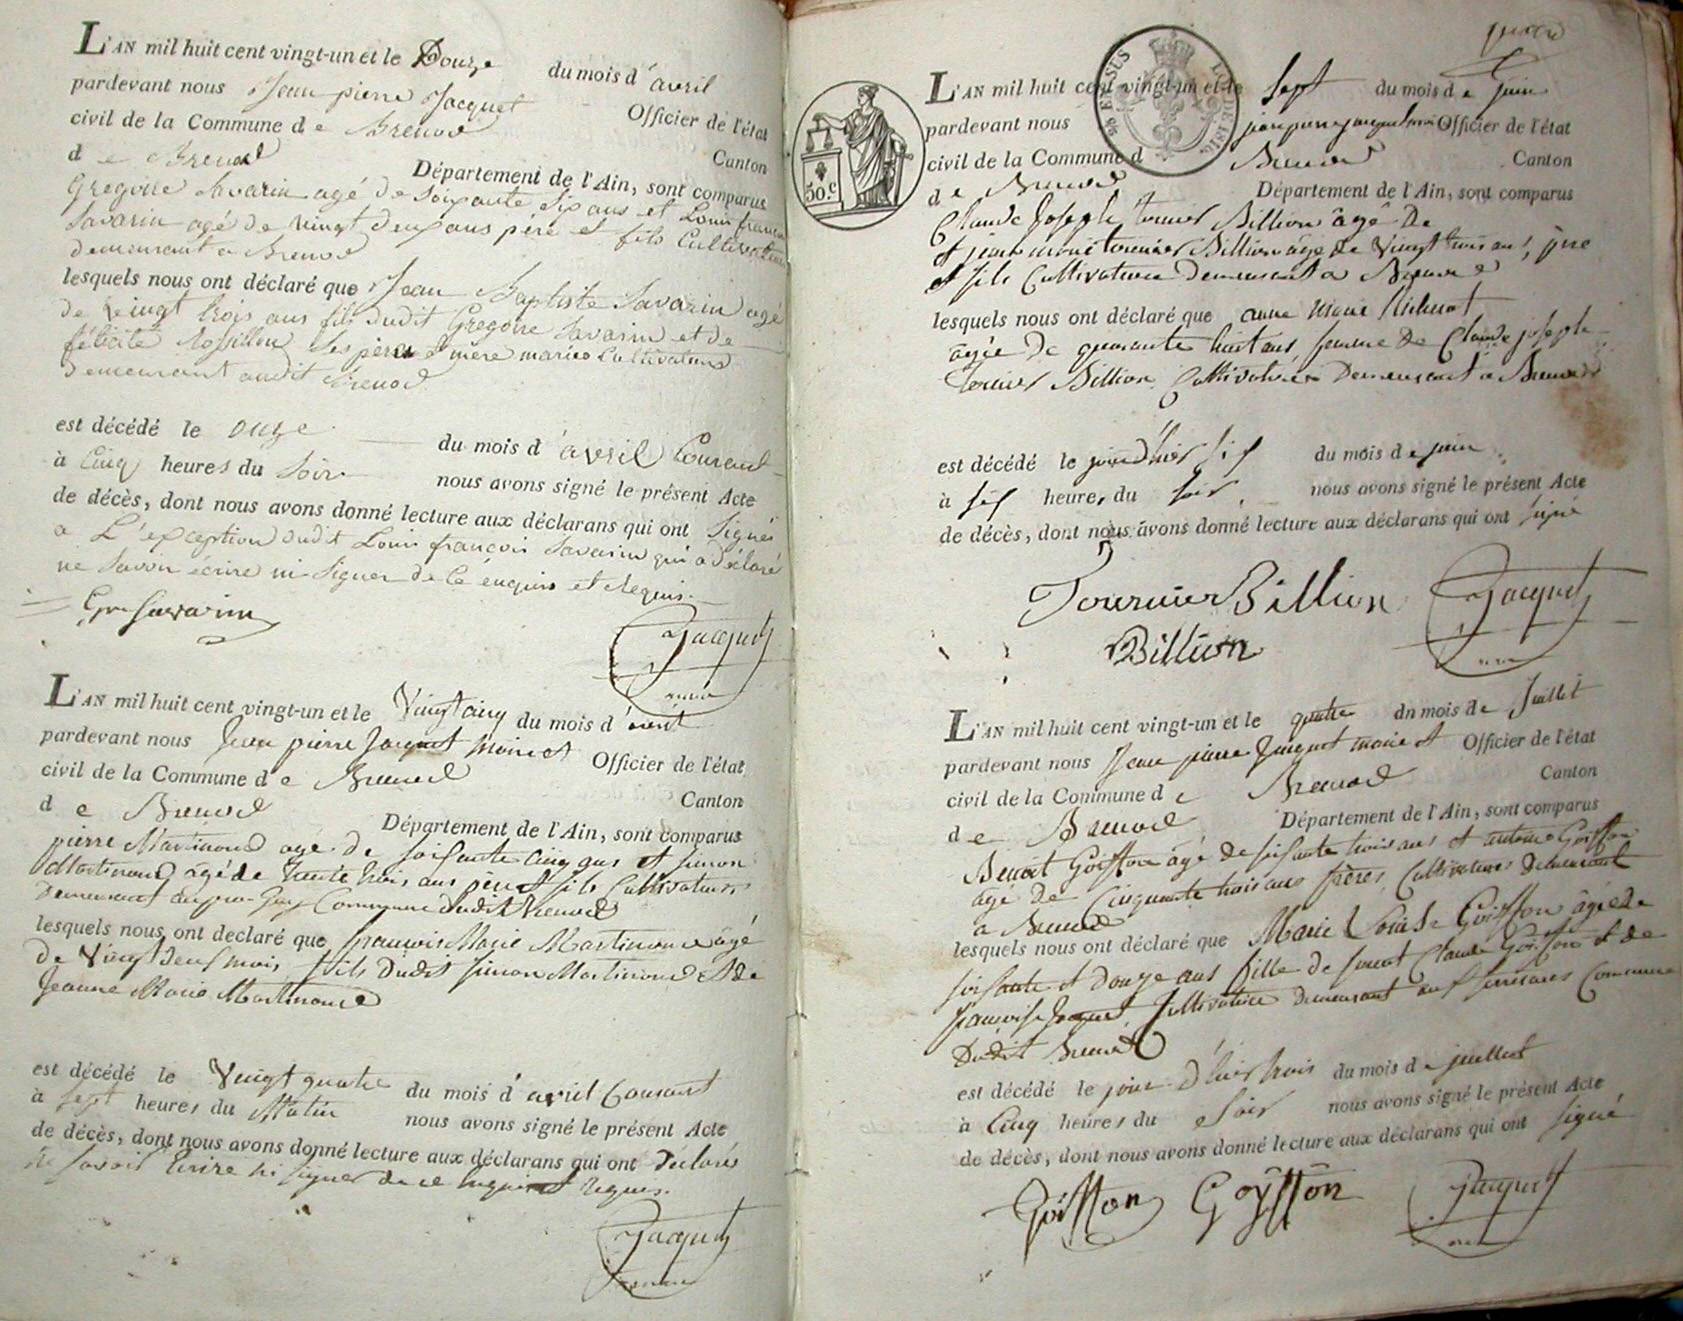 L'AN mil huit cent vingt-un et le Douze du mois d'avril
pardevant nous Jean pierre Jacquet
Officier de l'état
civil de la Commune de Brenod
Canton
de Brenod
Département de l'Ain, sont comparus
Gregoire Savarin agé de soixante six ans et Louis françois
Savarin agé de vingt deux ans père et fils Cultivateurs
demeurant a Brenod
lesquels nous ont déclaré que Jean Baptiste Savarin agé
de vingt trois ans fils dudit Gregoire Savarin et de
félicité ses père et mère mariés Cultivateurs
demeurant audit Brenod
est décédé le onze du mois d'avril Courant
à Cinq heures du Soir nous avons signé le présent Acte
de décès, dont nous avons donné lecture aux déclarans qui ont Signés
a L'exception dudit Louis françois Savarin qui a déclaré
ne Savoir écrire ni Signer de Ce enquis et Requis.
Gre Savarin
Jacquet
maire
L'AN mil huit cent vingt-un et le Vingt cinq du mois d'avril
pardevant nous Jean pierre Jacquet maire et Officier de l'état
civil de la Commune de Brenod
Canton
de Brenod
Département de l'Ain, sont comparus
pierre Martinand agé de soixante cinq ans et simon
Martinand agé de trente trois ans père et fils Cultivateurs
Demeurant Commune dudit Brenod
lesquels nous ont declaré que françois Marie Martinand agé
de Vingt deux mois, fils Dudit Simon Martinand et de
Jeanne Marie Martinand
est décédé le Vingt quatre du mois d'avril Courant
à Sept heures du Matin nous avons signé le présent Acte
de décès, dont nous avons donné lecture aux déclarans qui ont Déclarés
ne Savoir Ecrire ni Signer de ce enquis et Requis.
Jacquet
maire
50.C
L'AN mil huit cent vingt-un et le Sept du mois de Juin
pardevant nous jean pierre jacquet maire Officier de l'état
civil de la Commune d Brenod Canton
de Brenod Département de l'Ain, sont comparus
Claude Joseph tournier Billion agé De
et jean marie tournier Billion agé de Vingt trois ans, père
et fils Cultivateurs Demeurant a Brenod
lesquels nous ont déclaré que anne Marie
agée De quarante huit ans femme De Claude joseph
Tournier Billion Cultivatrice Demeurant a Brenod
est décédé le jour D'hier six du mois de juin
à six heures du soir, nous avons signé le présent Acte
de décès, dont nous avons donné lecture aux déclarans qui ont signé
Tournier Billion
Jacquet
Billion
maire
L'AN mil huit cent vingt-un et le quatre du mois de Juillet
pardevant nous Jean pierre Jacquet maire et Officier de l'état
civil de la Commune de Brenod Canton
de Brenod Département de l'Ain, sont comparus
Benoit Goiffon agé de soixante trois ans et antoine Goiffon
agé de Cinquante trois ans frères, Cultivateurs Demeurant
a Brenod
lesquels nous ont déclaré que Marie Louise Goiffon agée de
soixante et douze ans fille de Claude Goiffon et de
françoise Jacquet, Cultivatrice demeurant aux Commune
Dudit Brenod
est décédé le jour D'hier trois du mois de juillet
à Cinq heures du Soir nous avons signé le présent Acte
de décès, dont nous avons donné lecture aux déclarans qui ont Signé
Goiffon Goÿffon Jacquet
maire